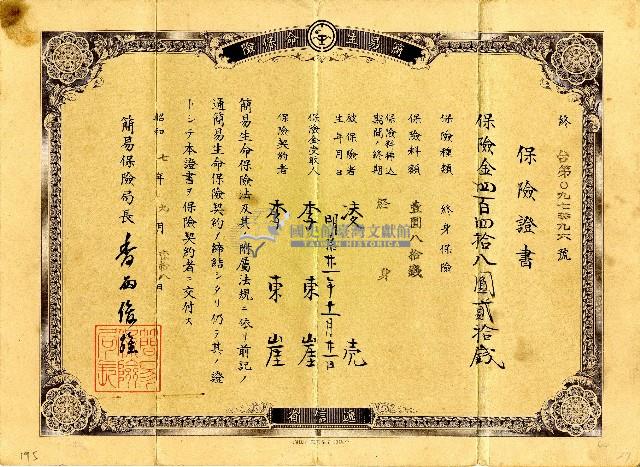 簡易生命保險
終 台第〇九七
號
保險證書
保險金四百四拾八圓貳拾錢
保險種類 終身保險
保險料額 壹圓八拾錢
保險料拂込期間ノ終期 終身
被保險者 凌売
生年月日 明治廿一年十一月廿一日
保險金受取人 李東崖
保險契約者 李東崖
簡易生命保險法及其ノ附屬法規ニ依リ前記ノ
通簡易生命保險契約ノ締結シタリ仍テ其ノ證
トシテ本證書ヲ保險契約者ニ交付ス
昭和七年九月 八日
簡易保險局長
簡易保險局長
遞信省
國史館臺灣文獻館
TAIWAN HISTORICA
195